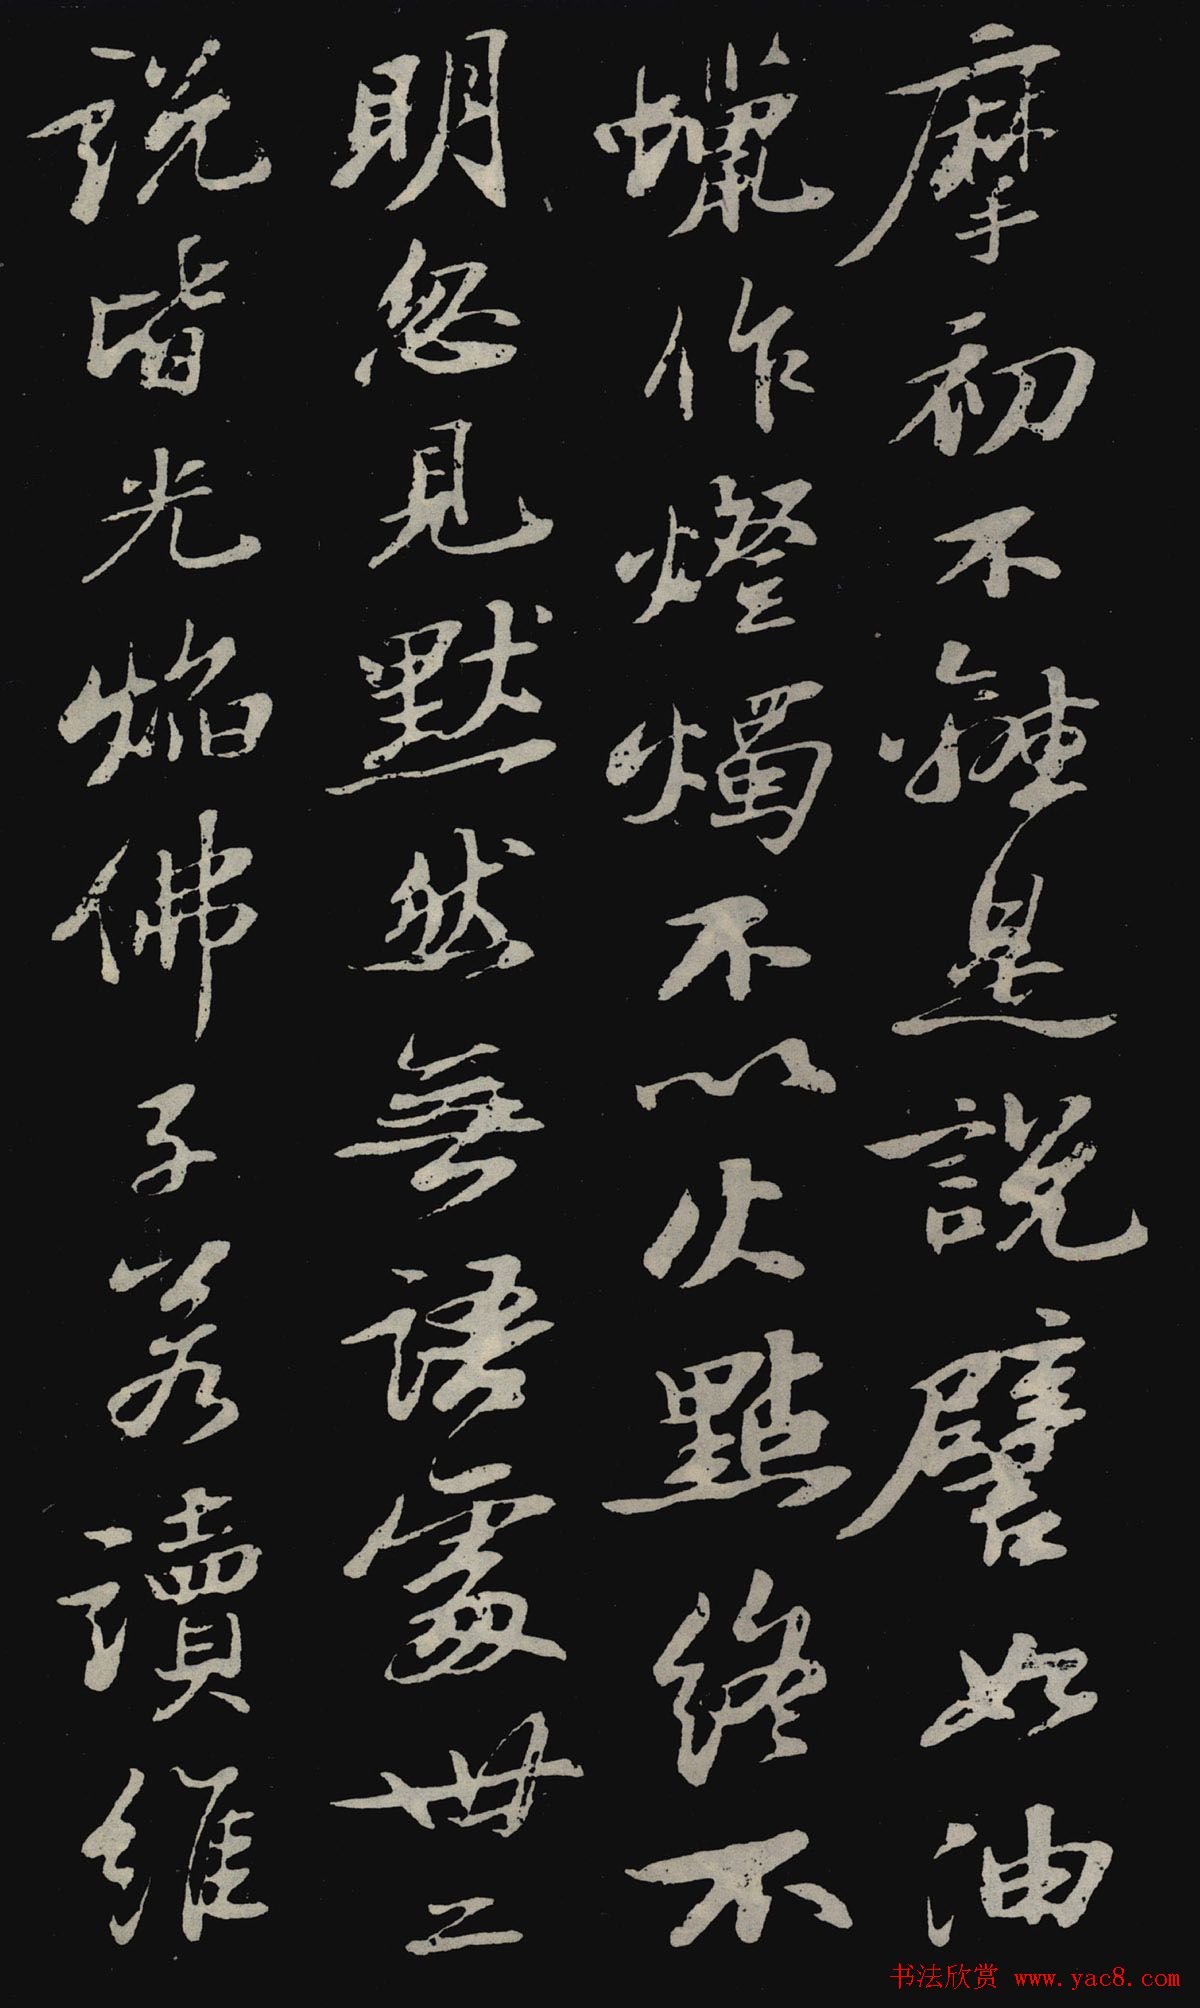 摩初不離是説譬如油
蠟作燈燭不以火點終不
明忽見默然無語處卅二
説皆光焰佛子若讀維
书法欣赏 www.yac8.com